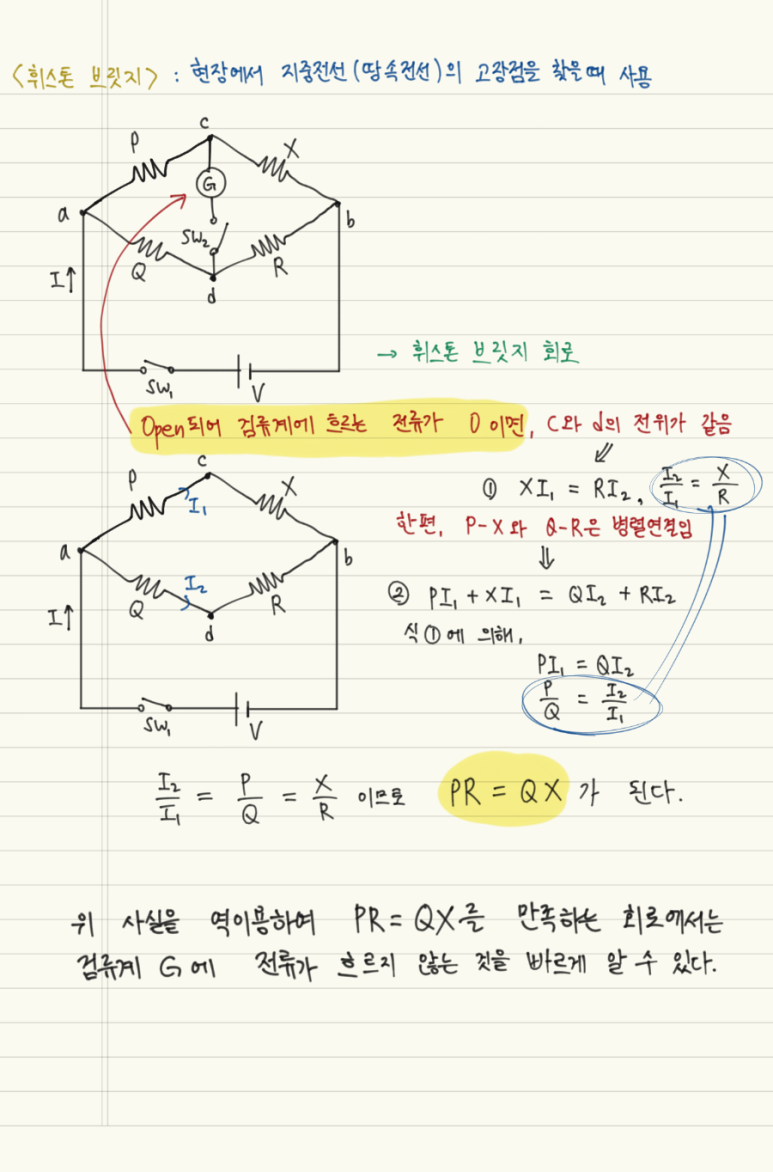 <휘스톤 브릿지> : 현장에서 지중전선(땅속전선)의 고장점을 찾을때 사용
c
P
X
G
a
b
SW₂
Q
R
I↑
d
SW₁
V
→ 휘스톤 브릿지 회로
Open되어 검류계에 흐르는 전류가 0 이면, C와 d의 전위가 같음
⇙
① XI₁ = RI₂, I₂/I₁ = X/R
한편, P-X와 Q-R은 병렬연결임
⇓
② PI₁ + XI₁ = QI₂ + RI₂
식 ①에 의해,
PI₁ = QI₂
P/Q = I₂/I₁
c
P
X
I₁
a
b
I₂
Q
R
I↑
d
SW₁
V
I₂/I₁ = P/Q = X/R 이므로 PR = QX 가 된다.
위 사실을 역이용하여 PR = QX를 만족하는 회로에서는
검류계 G에 전류가 흐르지 않는 것을 바르게 알 수 있다.